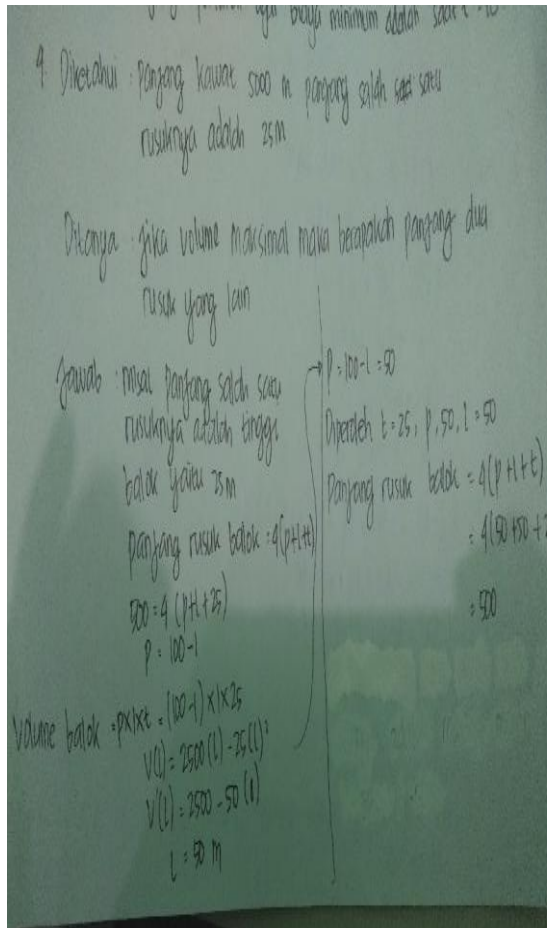 biaya minimum adalah saat
4. Diketahui : Panjang kawat 5000 m panjang salah satu
rusuknya adalah 25m
Ditanya : jika volume maksimal maka berapakah panjang dua
rusuk yang lain
Jawab : misal panjang salah satu
rusuknya adalah tinggi
balok yaitu 25m
panjang rusuk balok = 4(p+l+t)
500 = 4 (p+l+25)
P = 100-l
Volume balok = pxlxt = (100-l) x l x 25
V(l) = 2500(l) - 25(l)²
V'(l) = 2500 - 50(l)
l = 50 m
P = 100-l = 50
Diperoleh t = 25, p, 50, l = 50
Panjang rusuk balok = 4(p+l+t)
= 4(50+50+2
= 500